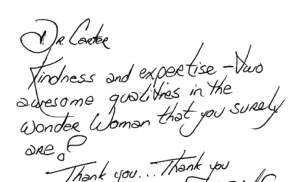 Dr Carter
Kindness and expertise - two
awesome qualities in the
Wonder Woman that you surely
are!
Thank you... Thank you